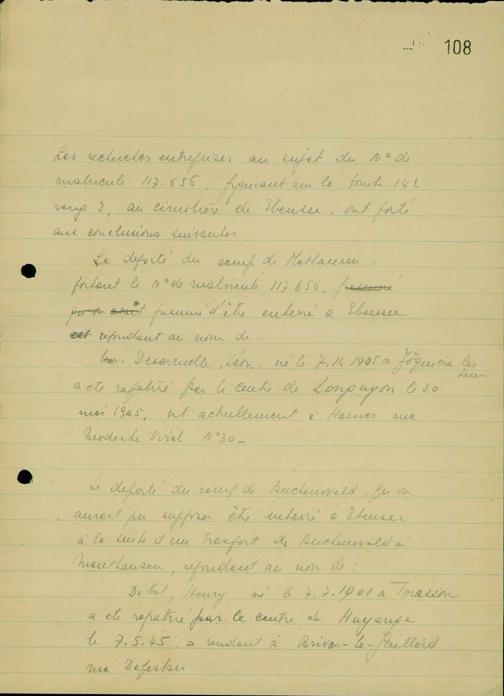 108
Les recherches entreprises au sujet du N° de
matricule 117.656, figurant sur la tombe 142
rang 2, au cimetière de Ebensee, ont porté
aux conclusions suivantes:
Le deporté du camp de Mathausen.
portant le N° de matricule 117 656,
presumé d'être enterré a Ebensee
est repondant au nom de.
Léon, né le 7.11.1905 a les
a ete rapatrié par le centre de Longuyon le 20
mai 1945, est actuellement à Harnes rue
Modeste Virel N°30-
Le deporté du camp de Buchenwald, qu'on
aurait pu supposer être enterré à Ebensee
à la suite d'un trasport de Buchenwald à
Mauthausen, repondant au nom de:
Henry né le 7.7.1901 a Tarascon
a ete rapatrié par le centre de Hayange
le 7.5.45, a rendant à Brive-la-Gaillard.
rue